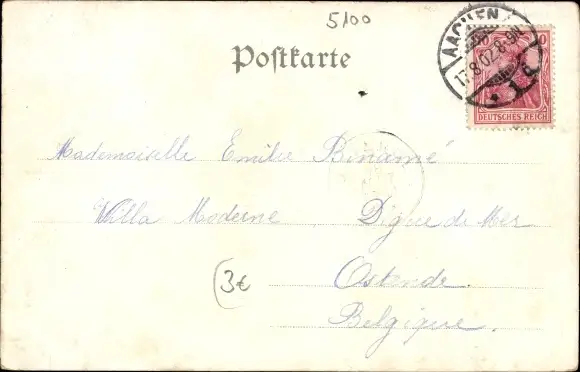 5100
Postkarte
AACHEN
17.8.02.8-9N.
* 1 d
DEUTSCHES REICH
Mademoiselle Emilie
Villa Moderne Digue de Mer
3€
Ostende.
Belgique.